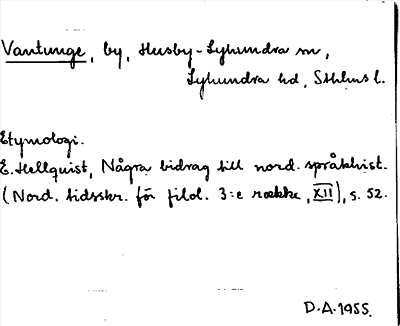 Vantunge, by, Husby-Lyhundra sn,
Lyhundra hd, Sthlms l.
Etymologi.
E. Hellquist, Några bidrag till nord. språkhist.
(Nord. tidsskr. för filol. 3:e række, XII), s. 52.
D.A. 1955.